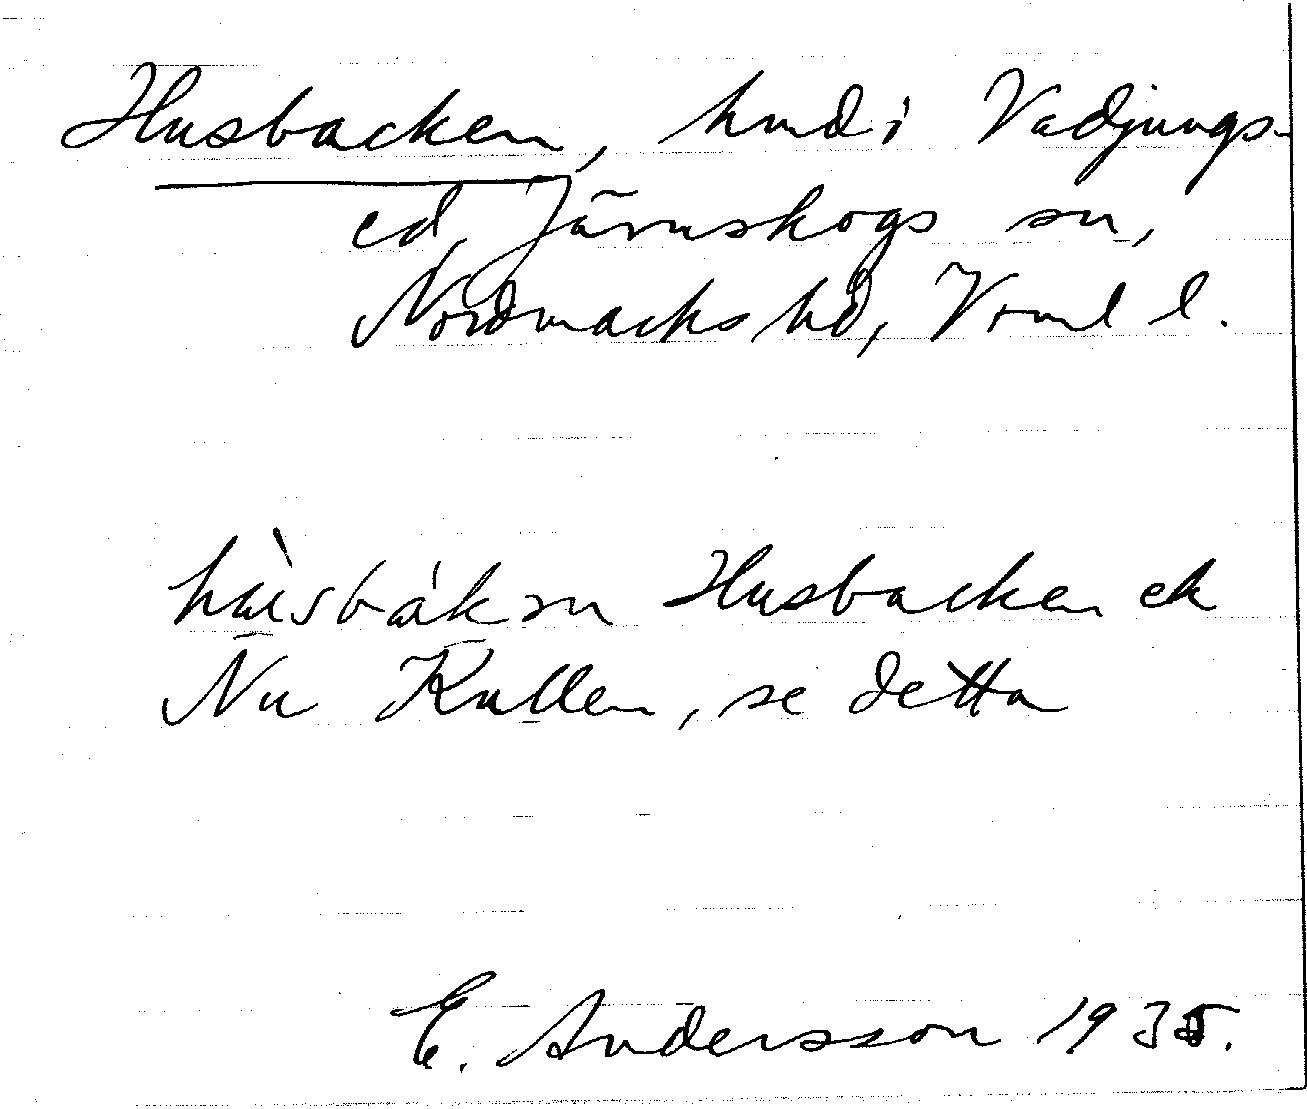 Husbacken, hmd i Vadjungs-
ed, Järnskogs sn,
Nordmarks hd, Vrml l.
Husbacken ek
Nu Kullen, se detta
E. Andersson 1935.